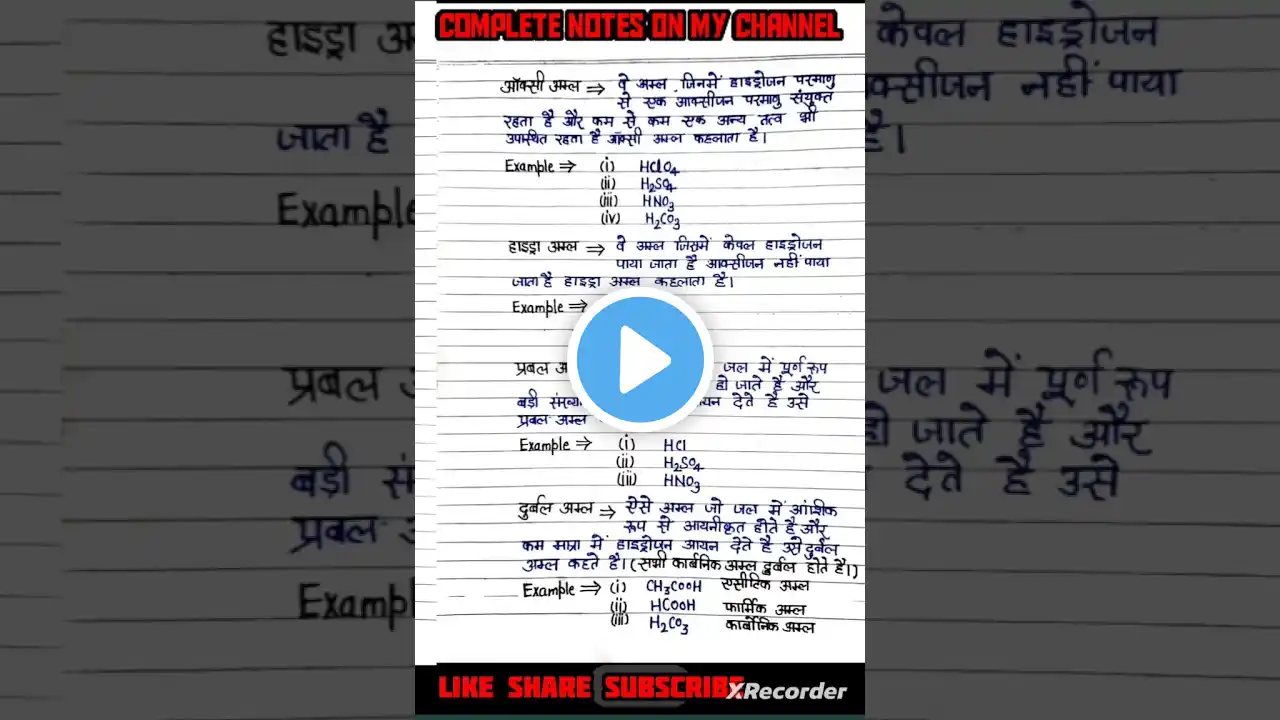 COMPLETE NOTES ON MY CHANNEL
ऑक्सी अम्ल ⇒ वे अम्ल जिनमें हाइड्रोजन परमाणु
से एक आक्सीजन परमाणु संयुक्त
रहता है और कम से कम एक अन्य तत्व भी
उपस्थित रहता है ऑक्सी अम्ल कहलाता है।
Example ⇒ (i) HClO₄
(ii) H₂SO₄
(iii) HNO₃
(iv) H₂CO₃
हाइड्रा अम्ल ⇒ वे अम्ल जिसमें केवल हाइड्रोजन
पाया जाता है आक्सीजन नहीं पाया
जाता है हाइड्रा अम्ल कहलाता है।
Example ⇒
प्रबल जल में पूर्ण रूप
हो जाते है और
बड़ी देते है उसे
प्रबल अम्ल
Example ⇒ (i) HCl
(ii) H₂SO₄
(iii) HNO₃
दुर्बल अम्ल ⇒ ऐसे अम्ल जो जल में आंशिक
रूप से आयनीकृत होते है और
कम मात्रा में हाइड्रोजन आयन देते है उसे दुर्बल
अम्ल कहते है। (सभी कार्बनिक अम्ल दुर्बल होते है।)
Example ⇒ (i) CH₃COOH एसीटिक अम्ल
(ii) HCOOH फार्मिक अम्ल
(iii) H₂CO₃ कार्बोनिक अम्ल
LIKE SHARE SUBSCRIBE
XRecorder